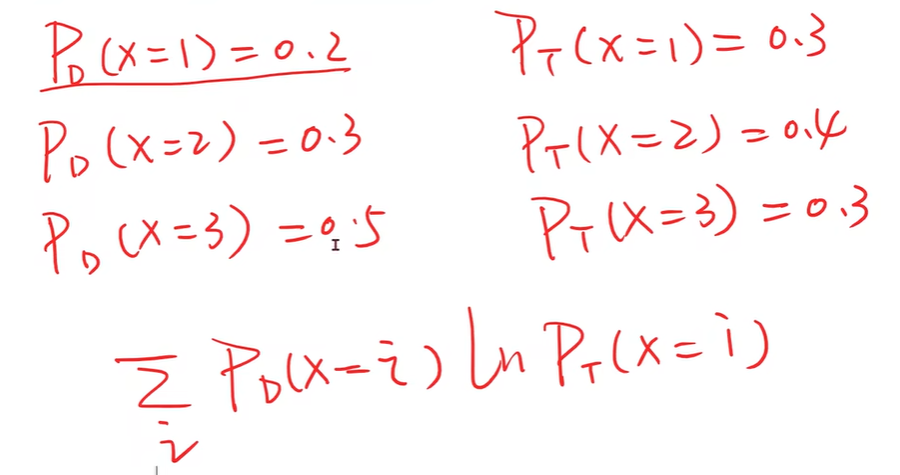 P_D(x=1)=0.2
P_T(x=1)=0.3
P_D(x=2)=0.3
P_T(x=2)=0.4
P_D(x=3)=0.5
P_T(x=3)=0.3
∑_i P_D(x=i) ln P_T(x=i)